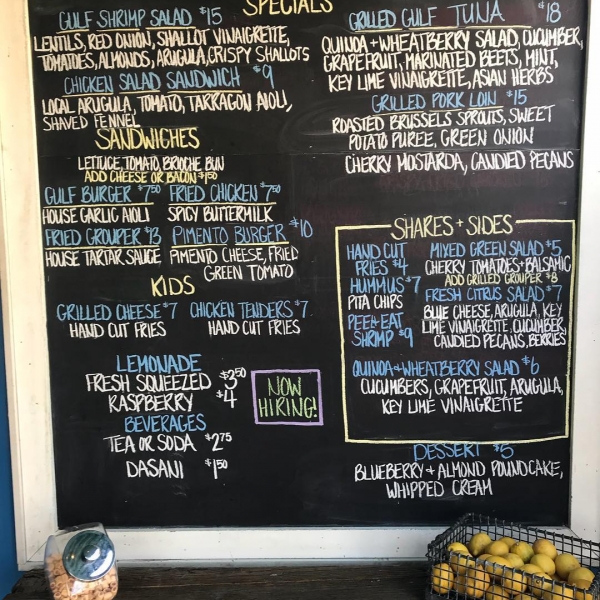 SPECIALS
GULF SHRIMP SALAD $15
LENTILS, RED ONION, SHALLOT VINAIGRETTE,
TOMATOES, ALMONDS, ARUGULA, CRISPY SHALLOTS
CHICKEN SALAD SANDWICH $9
LOCAL ARUGULA, TOMATO, TARRAGON AIOLI,
SHAVED FENNEL
GRILLED GULF TUNA $18
QUINOA + WHEATBERRY SALAD, CUCUMBER,
GRAPEFRUIT, MARINATED BEETS, MINT,
KEY LIME VINAIGRETTE, ASIAN HERBS
GRILLED PORK LOIN $15
ROASTED BRUSSELS SPROUTS, SWEET
POTATO PUREE, GREEN ONION
CHERRY MOSTARDA, CANDIED PECANS
SANDWICHES
LETTUCE, TOMATO, BRIOCHE BUN
ADD CHEESE OR BACON $1.50
GULF BURGER $7.50
HOUSE GARLIC AIOLI
FRIED CHICKEN $7.50
SPICY BUTTERMILK
FRIED GROUPER $13
HOUSE TARTAR SAUCE
PIMENTO BURGER $10
PIMENTO CHEESE, FRIED
GREEN TOMATO
KIDS
GRILLED CHEESE $7
HAND CUT FRIES
CHICKEN TENDERS $7
HAND CUT FRIES
LEMONADE
FRESH SQUEEZED $3.50
RASPBERRY $4
BEVERAGES
TEA OR SODA $2.75
DASANI $1.50
NOW
HIRING!
SHARES + SIDES
HAND CUT
FRIES $4
HUMMUS $7
PITA CHIPS
PEEL & EAT
SHRIMP $9
MIXED GREEN SALAD $5
CHERRY TOMATOES + BALSAMIC
ADD GRILLED GROUPER $8
FRESH CITRUS SALAD $7
BLUE CHEESE, ARUGULA, KEY
LIME VINAIGRETTE, CUCUMBER,
CANDIED PECANS, BERRIES
QUINOA + WHEATBERRY SALAD $6
CUCUMBERS, GRAPEFRUIT, ARUGULA,
KEY LIME VINAIGRETTE
DESSERT $5
BLUEBERRY + ALMOND POUNDCAKE,
WHIPPED CREAM